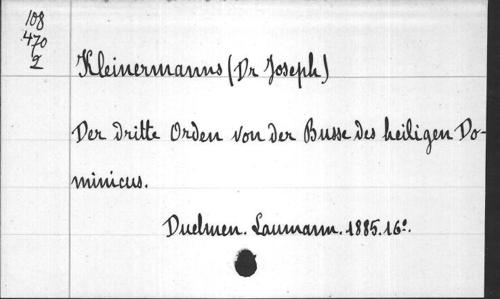 108
470
2
Kleinermanns (Dr Joseph)
Der dritte Orden von der Busse des heiligen Do-
minicus.
Duelmen. Laumann. 1885. 16°.